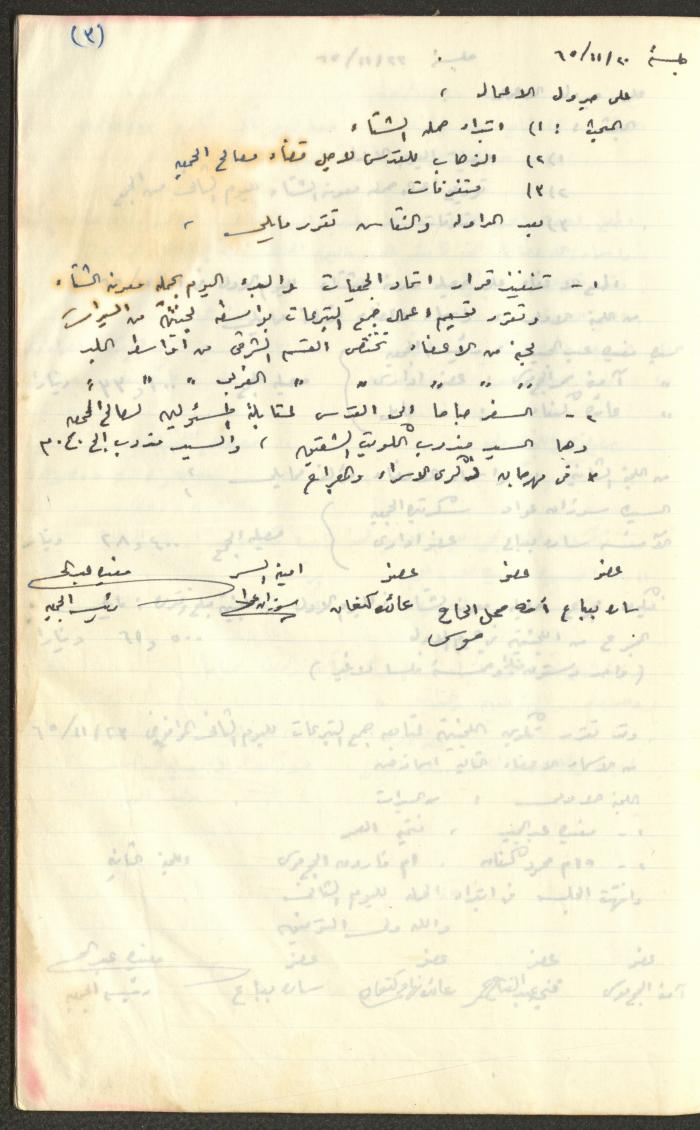 (٣)
جلسة ٢٠/١١/٦٥
على جدول الاعمال ،
البحث : ١) ابتداء حملة الشتاء
٢) الذهاب للقدس لاجل قضاء مصالح الجمعية
٣) متفرقات
بعد المداولة والنقاش تقرر مايلي ،
١ - تنفيذ قرار اتحاد الجمعيات والبدء اليوم بحملة معونة الشتاء
وتقرر تقسيم اعمال جمع التبرعات بواسطة لجنتين من السيدات
لجنة من الاعضاء تختص القسم الشرقي من اواسط البلد
" " " " الغربي " " "
٢ - السفر صباحا الى القدس لمقابلة المسؤولين لصالح الجمعية
وهما السيد مندوب الكويت الشقيق ، والسيد مندوب ال ج.ع.م
في مهرجان ذكرى الاسراء والمعراج
عضو عضو عضو امينة السر
آمنة محمل الحاج موسى عائدة كنعان سوزان عواد رئيسة الجمعية